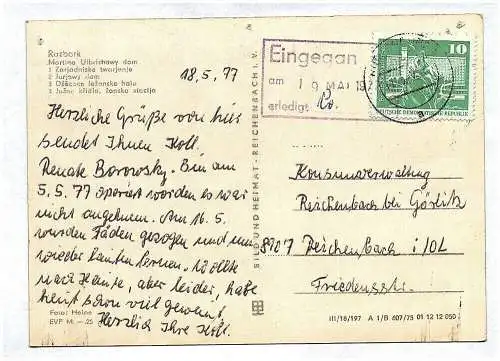 Rozbork
Martina Ulbrichowy dom
1 Zarjadniske twarjenje
2 Jurjowy dom
3 Džěćace ležanska hala
4 Južne křidło, ženska stacija
18.5.77
Herzliche Grüße von hier
sendet Ihnen Koll.
Renate Borowsky. Bin am
5.5.77 operiert worden es war
nicht angenehm. Am 16.5.
wurden Fäden gezogen und nun
wieder laufen lernen. Wollte
nach Hause, aber leider, habe
heut schon viel geweint.
Herzlich Ihre Koll.
Foto: Heine
EVP M. -.25
BILD UND HEIMAT · REICHENBACH I. V.
Eingegan
am 19 MAI 197
erledigt
10
DEUTSCHE DEMOKRATISCHE REPUBLIK
Konsumverwaltung
Reichenbach bei Görlitz
8907 Reichenbach i/OL
Friedensstr.
III/18/197 A 1/B 607/75 01 12 12 050